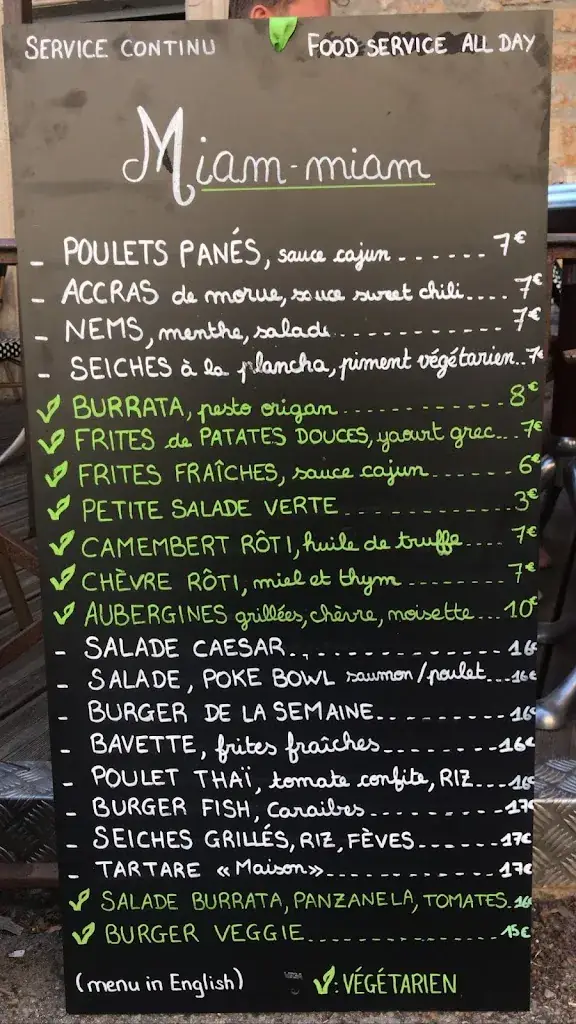 SERVICE CONTINU
FOOD SERVICE ALL DAY
Miam-miam
- POULETS PANÉS, sauce cajun ...... 7€
- ACCRAS de morue, sauce sweet chili.... 7€
- NEMS, menthe, salade............ 7€
- SEICHES à la plancha, piment végétarien.. 7€
BURRATA, pesto origan............ 8€
FRITES de PATATES DOUCES, yaourt grec... 7€
FRITES FRAÎCHES, sauce cajun...... 6€
PETITE SALADE VERTE............ 3€
CAMEMBERT RÔTI, huile de truffe.... 7€
CHÈVRE RÔTI, miel et thym........ 7€
AUBERGINES grillées, chèvre, noisette... 10€
- SALADE CAESAR............... 16€
- SALADE, POKE BOWL saumon/poulet...16€
- BURGER DE LA SEMAINE.........16€
- BAVETTE, frites fraîches.........16€
- POULET THAÏ, tomate confite, RIZ...16€
- BURGER FISH, Caraibes.........17€
- SEICHES GRILLÉS, RIZ, FÈVES......17€
- TARTARE «Maison»............17€
SALADE BURRATA, PANZANELA, TOMATES. 16€
BURGER VEGGIE............... 15€
(menu in English)
: VÉGÉTARIEN